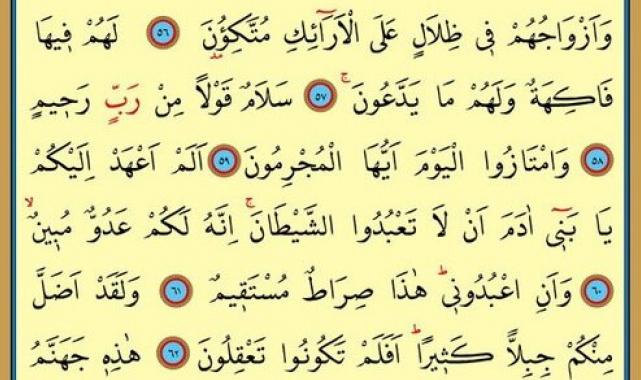 وَاَزْوَاجُهُمْ فٖي ظِلَالٍ عَلَى الْاَرَٓائِكِ مُتَّكِؤُنَ ﴿٥٦﴾ لَهُمْ فٖيهَا
فَاكِهَةٌ وَلَهُمْ مَا يَدَّعُونَۚ ﴿٥٧﴾ سَلَامٌ قَوْلاً مِنْ رَبٍّ رَحٖيمٍ
﴿٥٨﴾ وَامْتَازُوا الْيَوْمَ اَيُّهَا الْمُجْرِمُونَ ﴿٥٩﴾ اَلَمْ اَعْهَدْ اِلَيْكُمْ
يَا بَنٖٓي اٰدَمَ اَنْ لَا تَعْبُدُوا الشَّيْطَانَۚ اِنَّهُ لَكُمْ عَدُوٌّ مُبٖينٌۙ
﴿٦٠﴾ وَاَنِ اعْبُدُونٖيؕ هٰذَا صِرَاطٌ مُسْتَقٖيمٌ ﴿٦١﴾ وَلَقَدْ اَضَلَّ
مِنْكُمْ جِبِلاًّ كَثٖيراًؕ اَفَلَمْ تَكُونُوا تَعْقِلُونَ ﴿٦٢﴾ هٰذِهٖ جَهَنَّمُ